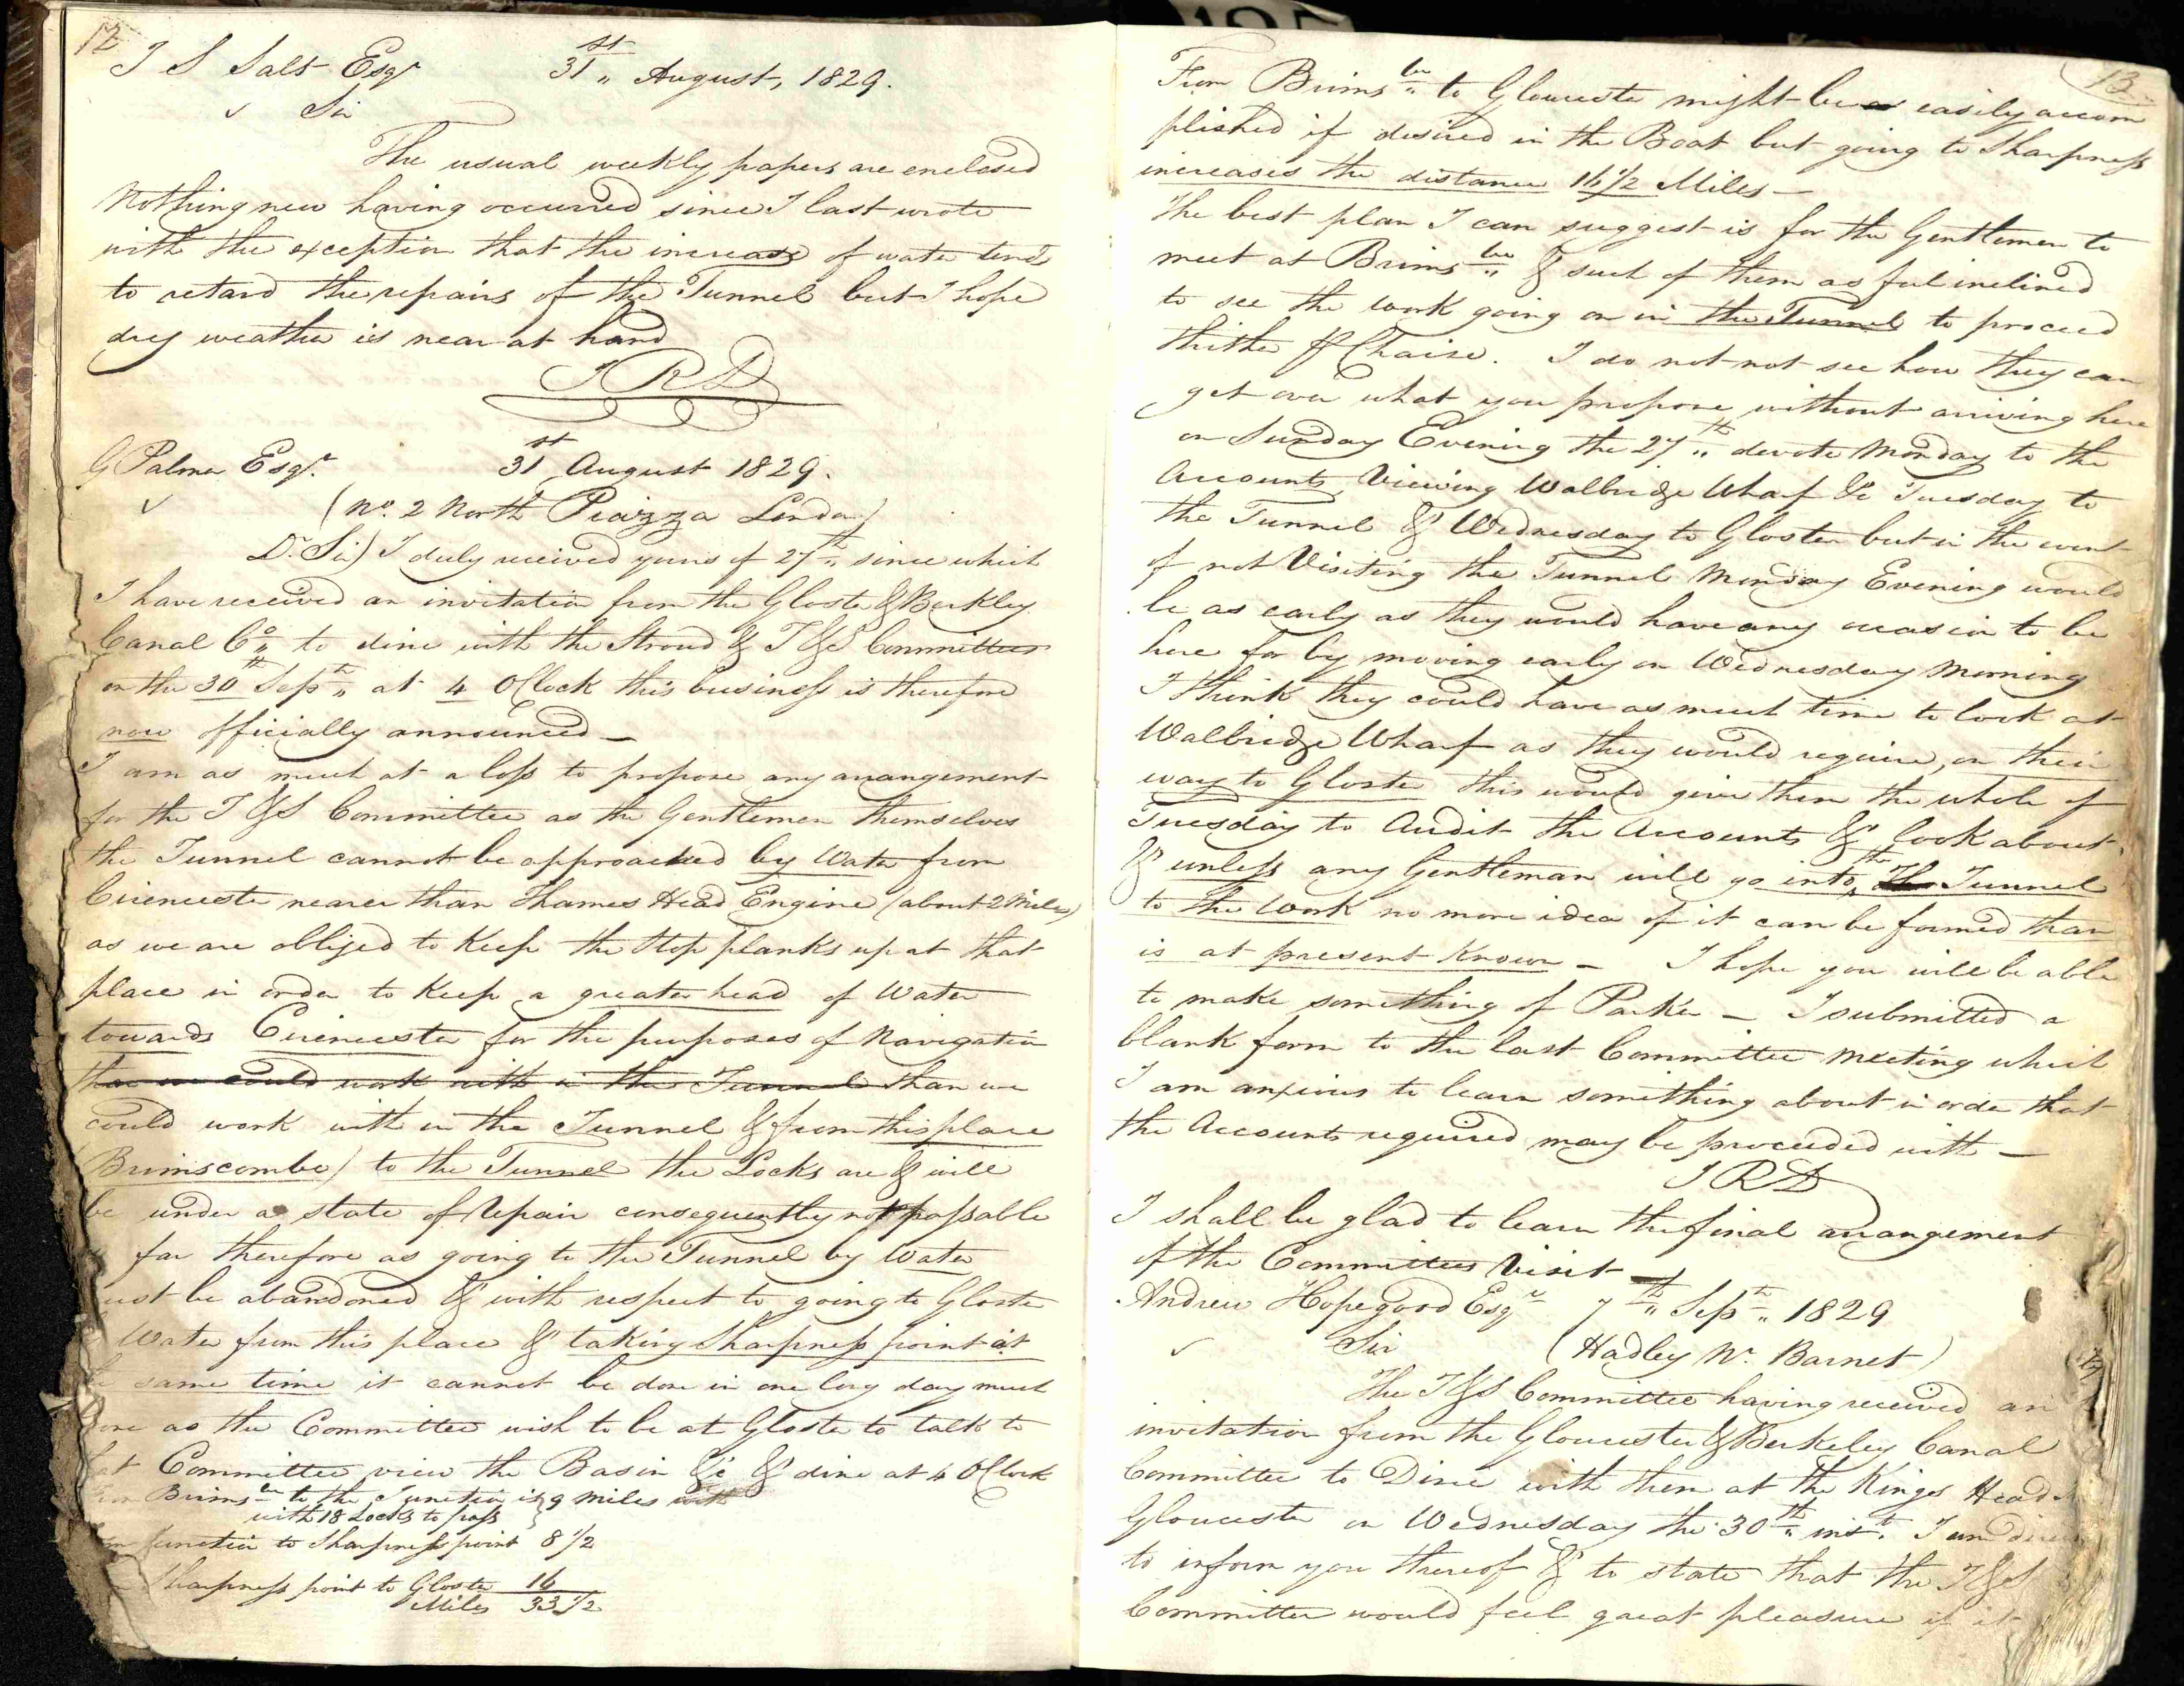 12
J S Salt Esqr 31st August, 1829.
✓ Sir
The usual weekly papers are enclosed
Nothing new having occurred since I last wrote
with the exception that the increase of water tends
to retard the repairs of the Tunnel but I hope
dry weather is near at hand
J R D
G Palmer Esqr. 31st August 1829.
✓ (No. 2 North Piazza London)
Dr. Sir) I duly received yours of 27th since which
I have received an invitation from the Gloster & Berkley
Canal Co. to dine with the Stroud & T & S Committees
on the 30th Sepr. at 4 O Clock this business is therefore
now officially announced —
I am as much at a loss to propose any arrangement
for the T & S Committee as the Gentlemen themselves
the Tunnel cannot be approached by Water from
Cirencester nearer than Thames Head Engine (about 2 Miles)
as we are obliged to Keep the Stop planks up at that
place in order to Keep a greater head of Water
towards Cirencester for the purposes of Navigation
than we could work with in the Tunnel than we
could work with in the Tunnel & from this place
(Brimscombe) to the Tunnel the Locks are & will
be under a state of Repair consequently not passable
far therefore as going to the Tunnel by Water
ust be abandoned & with respect to going to Gloster
Water from this place & taking Sharpness point at
same time it cannot be done in one long day much
ore as the Committee wish to be at Gloster to talk to
at Committee view the Basin &c & dine at 4 O Clock
Brimsbe to the Junction is 9 Miles with
with 18 Locks to pass
Junction to Sharpness point 8 1/2
Sharpness point to Gloster 16
Miles 33 1/2
13
From Brimsbe to Gloucester might be as easily accom
plished if desired in the Boat but going to Sharpness
increases the distance 16 1/2 Miles —
The best plan I can suggest is for the Gentlemen to
meet at Brimsbe & such of them as feel inclined
to see the work going on in the Tunnel to proceed
thither Chaise. I do not not see how they can
get over what you propose without arriving here
on Sunday Evening the 27th devote Monday to the
Accounts Viewing Walbridge Wharf &c Tuesday to
the Tunnel & Wednesday to Gloster but in the event
of not Visiting the Tunnel Monday Evening would
be as early as they would have any occasion to be
here for by moving early on Wednesday Morning
I think they could have as much time to look at
Walbridge Wharf as they would require, on their
way to Gloster this would give them the whole of
Tuesday to Audit the Accounts & look about
& unless any Gentleman will go into the The Tunnel
to the work no more idea of it can be formed than
is at present Known — I hope you will be able
to make something of Parker — I submitted a
blank form to the last Committee Meeting which
I am anxious to learn something about in order that
the Accounts required may be proceeded with —
J R D
I shall be glad to learn the final arrangement
of the Committees Visit —
Andrew Hopegood Esqr 7th Sepr. 1829
✓ Sir (Hadley Nr. Barnet)
The T & S Committee having received an
invitation from the Gloucester & Berkeley Canal
Committee to Dine with them at the Kings Head
Gloucester on Wednesday the 30th inst. I am
to inform you thereof & to state that the T & S
Committee would feel great pleasure if it